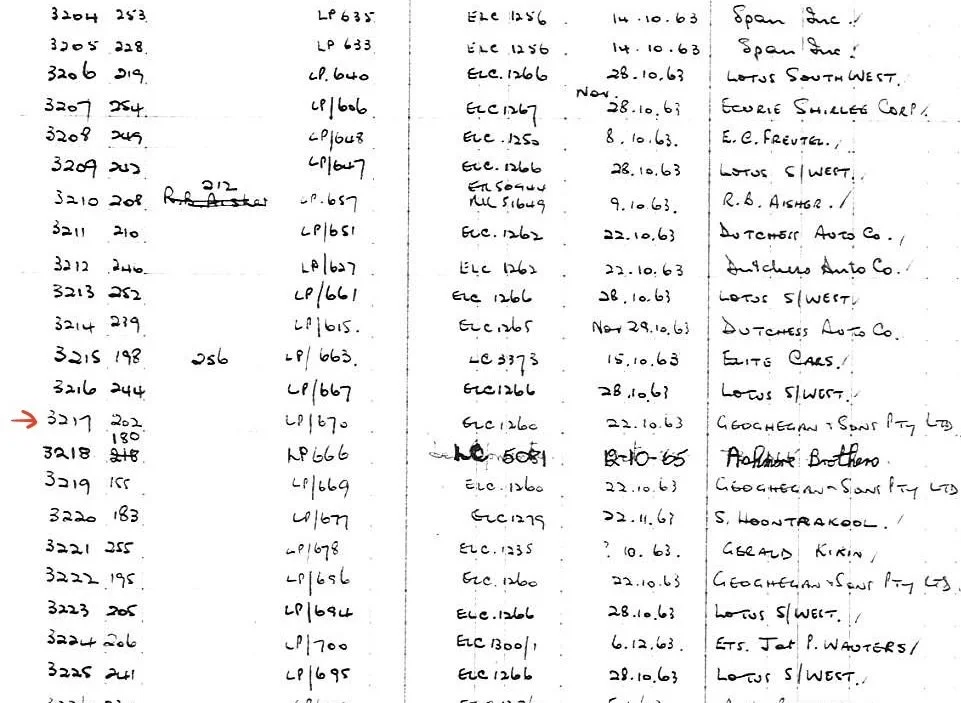 3204 253 LP 635 ELC 1256 14.10.63 Span Inc. /
3205 228 LP 633 ELC 1256 14.10.63 Span Inc. /
3206 219 LP.640 ELC.1266 28.10.63 LOTUS SOUTHWEST. /
Nov.
3207 254 LP/606 ELC1267 28.10.63 ECURIE SHIRLEE CORP. /
3208 249 LP/648 ELC.1250 8.10.63. E.C. FREUTEL. /
3209 LP/647 ELC.1266 28.10.63 LOTUS S/WEST. /
212
3210 208 R.B. Aisher LP.657 9.10.63. R.B. AISHER. /
3211 210 LP/651 ELC.1262 22.10.63 DUTCHESS AUTO CO. /
3212 246 LP/627 ELC 1262 22.10.63 Dutchess Auto Co. /
3213 252 LP/661 ELC 1266 28.10.63 LOTUS S/WEST. /
3214 239 LP/615. ELC1265 Nov 29.10.63 DUTCHESS AUTO CO.
3215 198 256 LP/663. LC 3373 15.10.63 ELITE CARS. /
3216 244 LP/667 ELC1266 28.10.63 LOTUS S/WEST. /
→ 3217 202 LP/670 ELC1260 22.10.63 GEOGHEGAN + SONS PTY LTD
180
3218 218 LP666 LC 5081 Brothers
3219 155 LP/669 ELC.1260 22.10.63 GEOGHEGAN + SONS PTY LTD
3220 183 LP/677 ELC1279 22.11.63 S. HOONTRAKOOL. /
3221 255 LP/678 ELC.1235 ? 10.63. GERALD KIKIN /
3222 195 LP/696 ELC.1260 22.10.63 GEOGHEGAN + SONS PTY LTD.
3223 205 LP/694 ELC.1266 28.10.63 LOTUS S/WEST. /
3224 206 LP/700 ELC1300/1 6.12.63. ETS. P. WAUTERS /
3225 241 LP/695 ELC.1266 28.10.63 LOTUS S/WEST. /